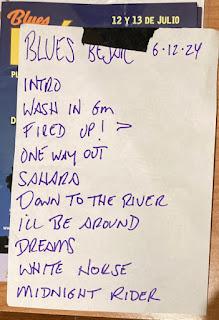 Blues
12 Y 13 DE JULIO
BLUES BEJAR 6-12-24
INTRO
WASH IN Gm
FIRED UP! >
ONE WAY OUT
SAHARA
DOWN TO THE RIVER
I'LL BE AROUND
DREAMS
WHITE HORSE
MIDNIGHT RIDER